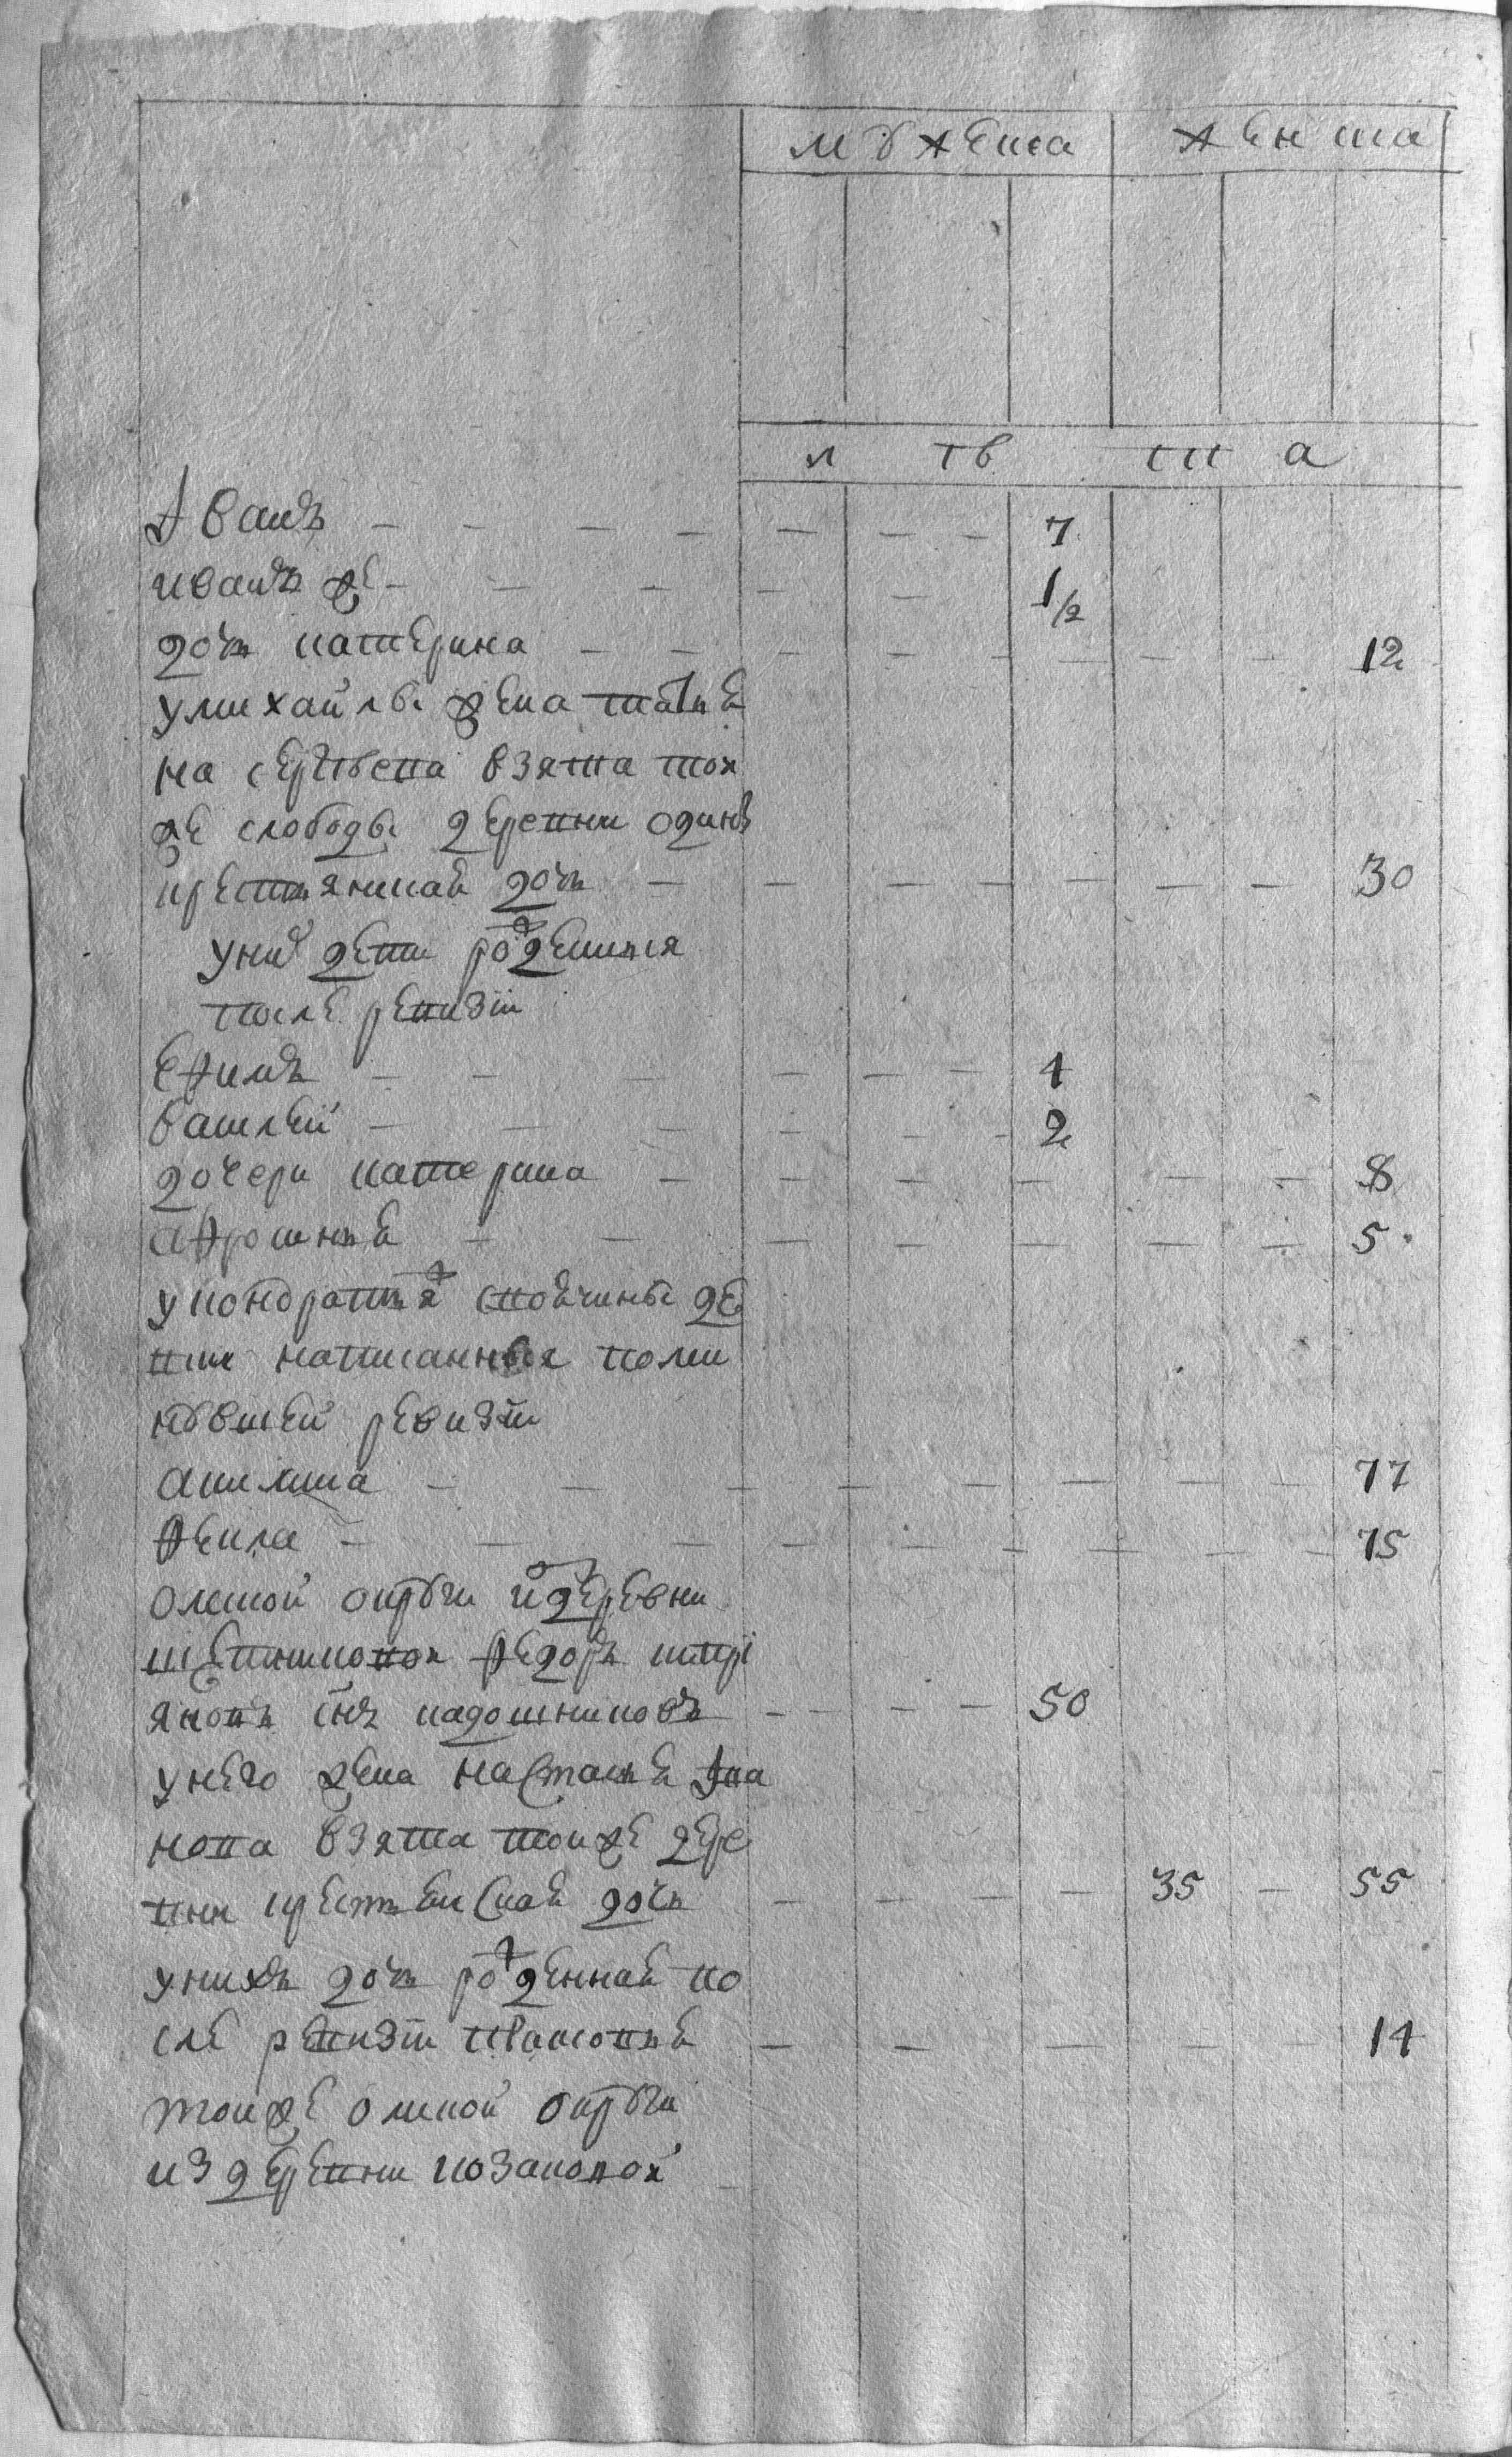 мужеска женска
л ѣ т а
Іванъ 7
иванъ же 1/2
дочь катерина 12
у михайлы жена татья
на сергѣева взята тоя
же слободы деревни один
крестьянская дочь 30
у них дети рожденныя
после ревизіи
Ефимъ 4
василей 2
дочери катерина 8
афросинья 5
у кондратья двойчины де
ти написанныя по ми
нувшей ревизіи
акилина 17
фекла 15
омской округи из деревни
федоръ
сынъ кадошниковъ 50
у него жена настасья Ива
нова взята тоиже дере
вни крестьянская дочь 35 55
у нихъ дочь рожденная по
сле ревизіи 14
тоиже омской округи
из деревни козаковой